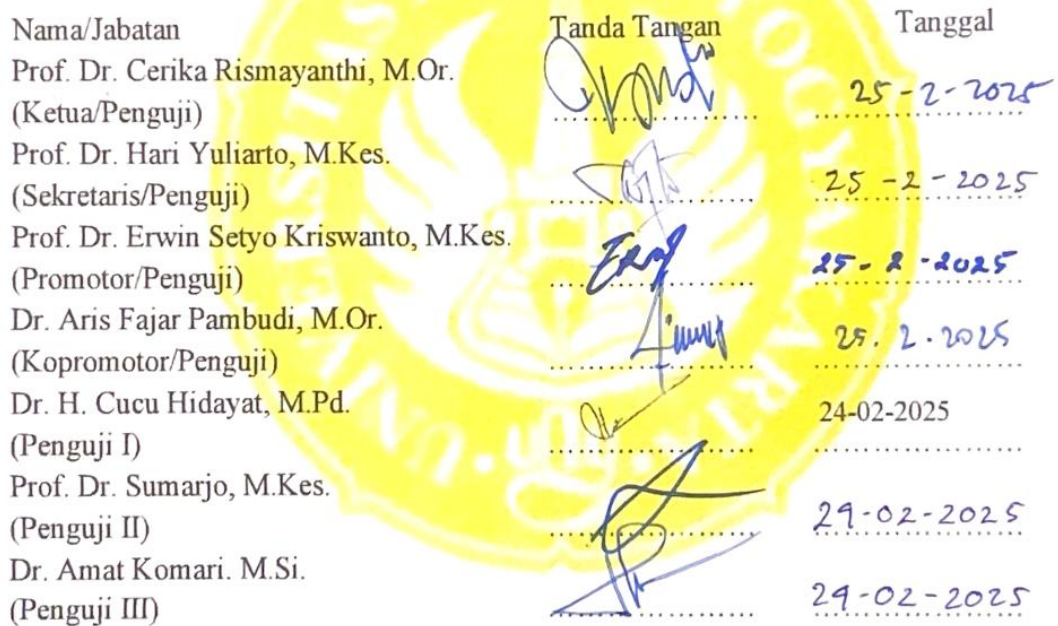 Nama/Jabatan Tanda Tangan Tanggal
Prof. Dr. Cerika Rismayanthi, M.Or.
(Ketua/Penguji) 25-2-2025
Prof. Dr. Hari Yuliarto, M.Kes.
(Sekretaris/Penguji) 25-2-2025
Prof. Dr. Erwin Setyo Kriswanto, M.Kes.
(Promotor/Penguji) 25-2-2025
Dr. Aris Fajar Pambudi, M.Or.
(Kopromotor/Penguji) 25.2.2025
Dr. H. Cucu Hidayat, M.Pd. 24-02-2025
(Penguji I)
Prof. Dr. Sumarjo, M.Kes.
(Penguji II) 29-02-2025
Dr. Amat Komari. M.Si.
(Penguji III) 29-02-2025